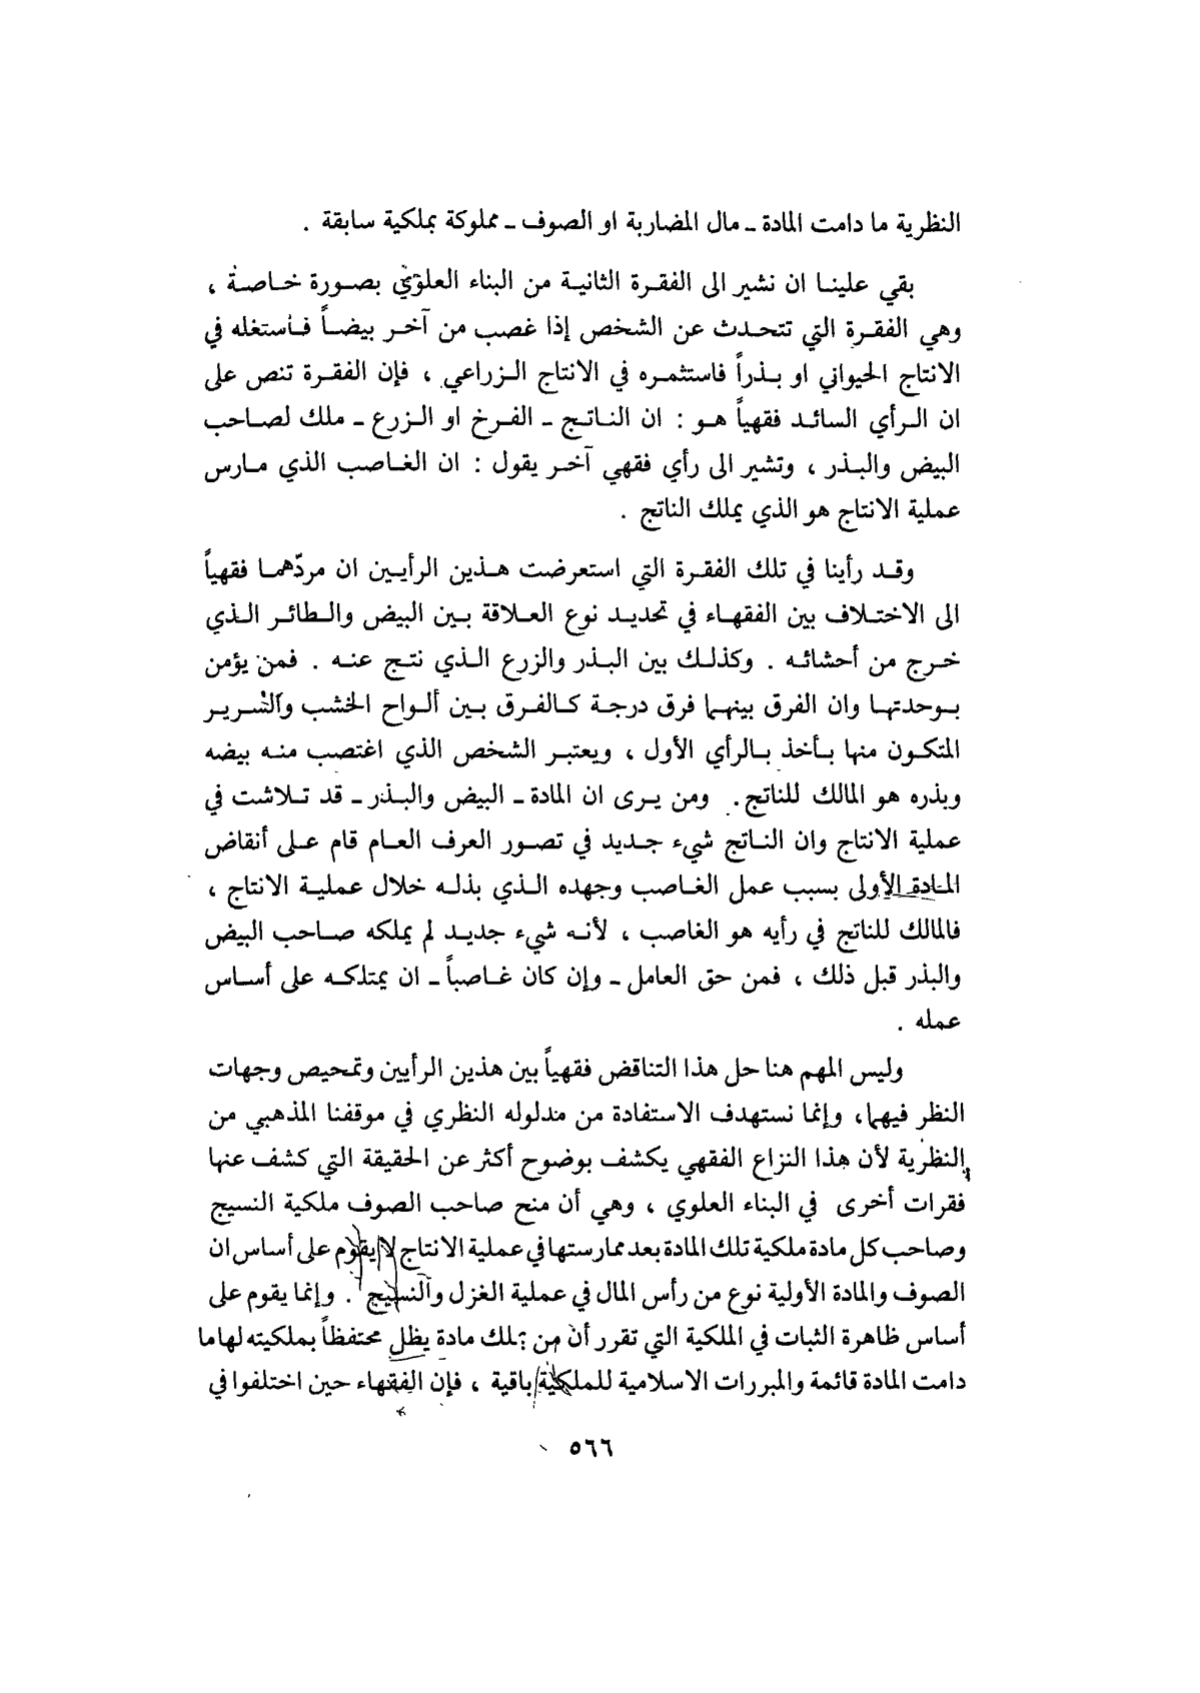 النظرية ما دامت المادة ـ مال المضاربة او الصوف ـ مملوكة بملكية سابقة .
بقي علينا ان نشير الى الفقرة الثانية من البناء العلوي بصورة خاصة ،
وهي الفقرة التي تتحدث عن الشخص إذا غصب من آخر بيضاً فأستغله في
الانتاج الحيواني او بذراً فاستثمره في الانتاج الزراعي ، فإن الفقرة تنص على
ان الرأي السائد فقهياً هو : ان الناتج ـ الفرخ او الزرع ـ ملك لصاحب
البيض والبذر ، وتشير الى رأي فقهي آخر يقول : ان الغاصب الذي مارس
عملية الانتاج هو الذي يملك الناتج .
وقد رأينا في تلك الفقرة التي استعرضت هذين الرأيين ان مردّهما فقهياً
الى الاختلاف بين الفقهاء في تحديد نوع العلاقة بين البيض والطائر الذي
خرج من أحشائه . وكذلك بين البذر والزرع الذي نتج عنه . فمن يؤمن
بوحدتها وان الفرق بينهما فرق درجة كالفرق بين ألواح الخشب والسرير
المتكون منها بأخذ بالرأي الأول ، ويعتبر الشخص الذي اغتصب منه بيضه
وبذره هو المالك للناتج . ومن يرى ان المادة ـ البيض والبذر ـ قد تلاشت في
عملية الانتاج وان الناتج شيء جديد في تصور العرف العام قام على أنقاض
المادة الأولى بسبب عمل الغاصب وجهده الذي بذله خلال عملية الانتاج ،
فالمالك للناتج في رأيه هو الغاصب ، لأنه شيء جديد لم يملكه صاحب البيض
والبذر قبل ذلك ، فمن حق العامل ـ وإن كان غاصباً ـ ان يمتلكه على أساس
عمله .
وليس المهم هنا حل هذا التناقض فقهياً بين هذين الرأيين وتمحيص وجهات
النظر فيهما، وإنما نستهدف الاستفادة من مدلوله النظري في موقفنا المذهبي من
النظرية لأن هذا النزاع الفقهي يكشف بوضوح أكثر عن الحقيقة التي كشف عنها
فقرات أخرى في البناء العلوي ، وهي أن منح صاحب الصوف ملكية النسيج
وصاحب كل مادة ملكية تلك المادة بعد ممارستها في عملية الانتاج لا يقوم على أساس ان
الصوف والمادة الأولية نوع من رأس المال في عملية الغزل والنسيج . وإنما يقوم على
أساس ظاهرة الثبات في الملكية التي تقرر أن من يملك مادة يظل محتفظاً بملكيته لها ما
دامت المادة قائمة والمبررات الاسلامية للملكية باقية ، فإن الفقهاء حين اختلفوا في
٥٦٦